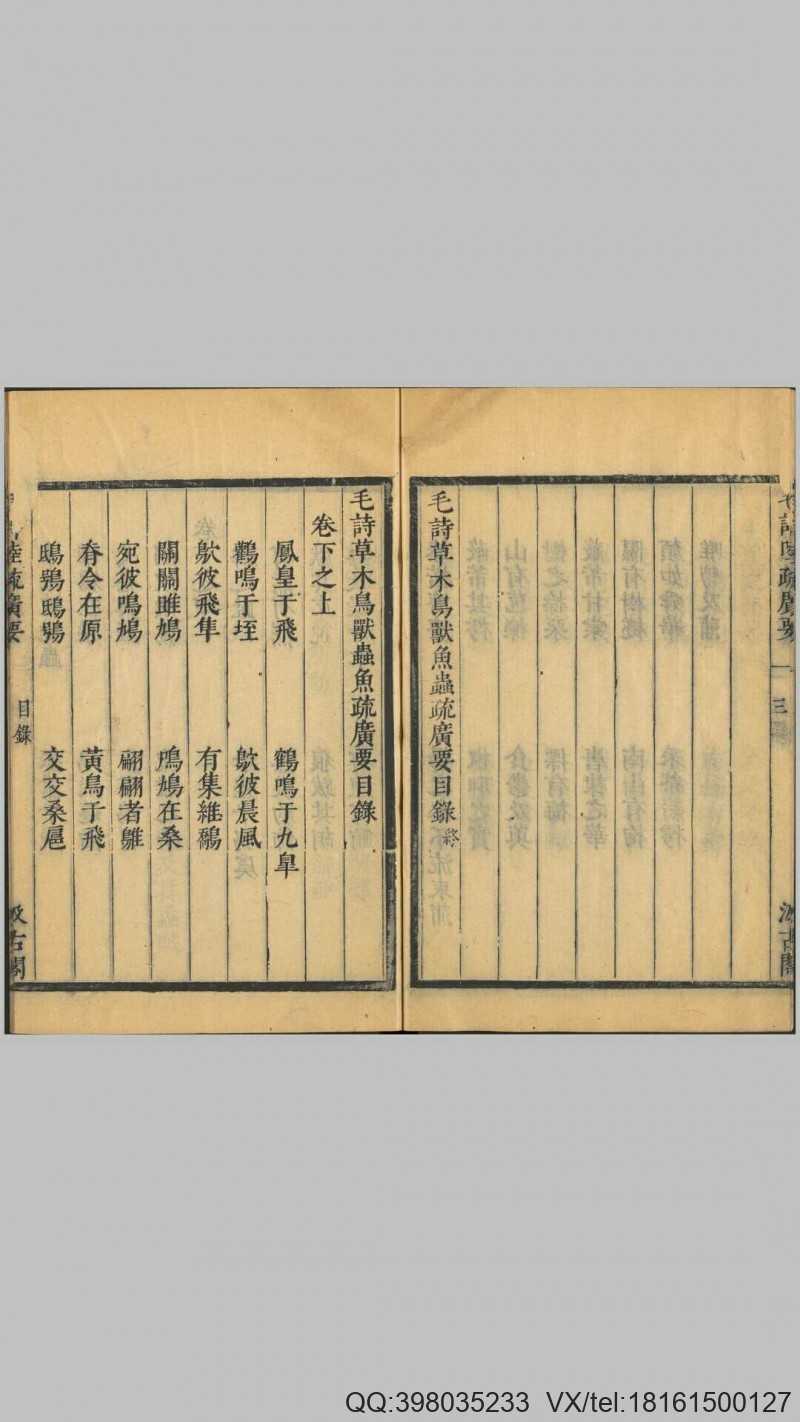 毛詩陸疏廣要
三
汲古閣
毛詩草木鳥獸魚蟲疏廣要目錄終
毛詩草木鳥獸蟲魚疏廣要目錄
卷下之上
鳳皇于飛 鶴鳴于九臯
鸛鳴于垤 鴥彼晨風
鴥彼飛隼 有集維鷮
關關雎鳩 鳲鳩在桑
宛彼鳴鳩 翩翩者鵻
脊令在原 黃鳥于飛
鴟鴞鴟鴞 交交桑扈
陸疏廣要
目錄
汲古閣
QQ:398035233 VX/tel:18161500127